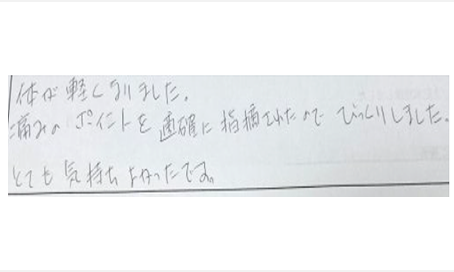 体が軽くなりました。
痛みの ポイントを 適確に 指摘されたので びっくりしました。
とても 気持ち よかったです。